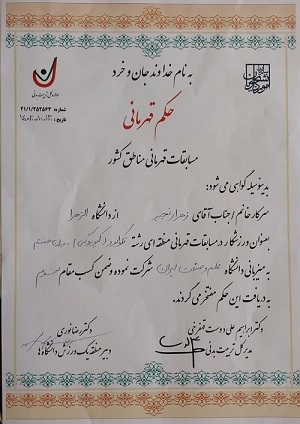 به نام خداوند جان و خرد
حکم قهرمانی
شماره: ۴۱/۱/۲۵۲۵۶۳
تاریخ:
مسابقات قهرمانی مناطق کشور
بدینوسیله گواهی می شود:
سرکار خانم / جناب آقای زهرا رنجبر از دانشگاه الزهرا
بعنوان ورزشکار در مسابقات قهرمانی منطقه ای رشته
به میزبانی دانشگاه علم و صنعت ایران شرکت نموده و ضمن کسب مقام سوم
به دریافت این حکم مفتخر می گردند.
دکتر ابراهیم علی دوست قهفرخی
مدیر کل تربیت بدنی
دکتر رضا نوری
دبیر منطقه یک ورزش دانشگاه ها